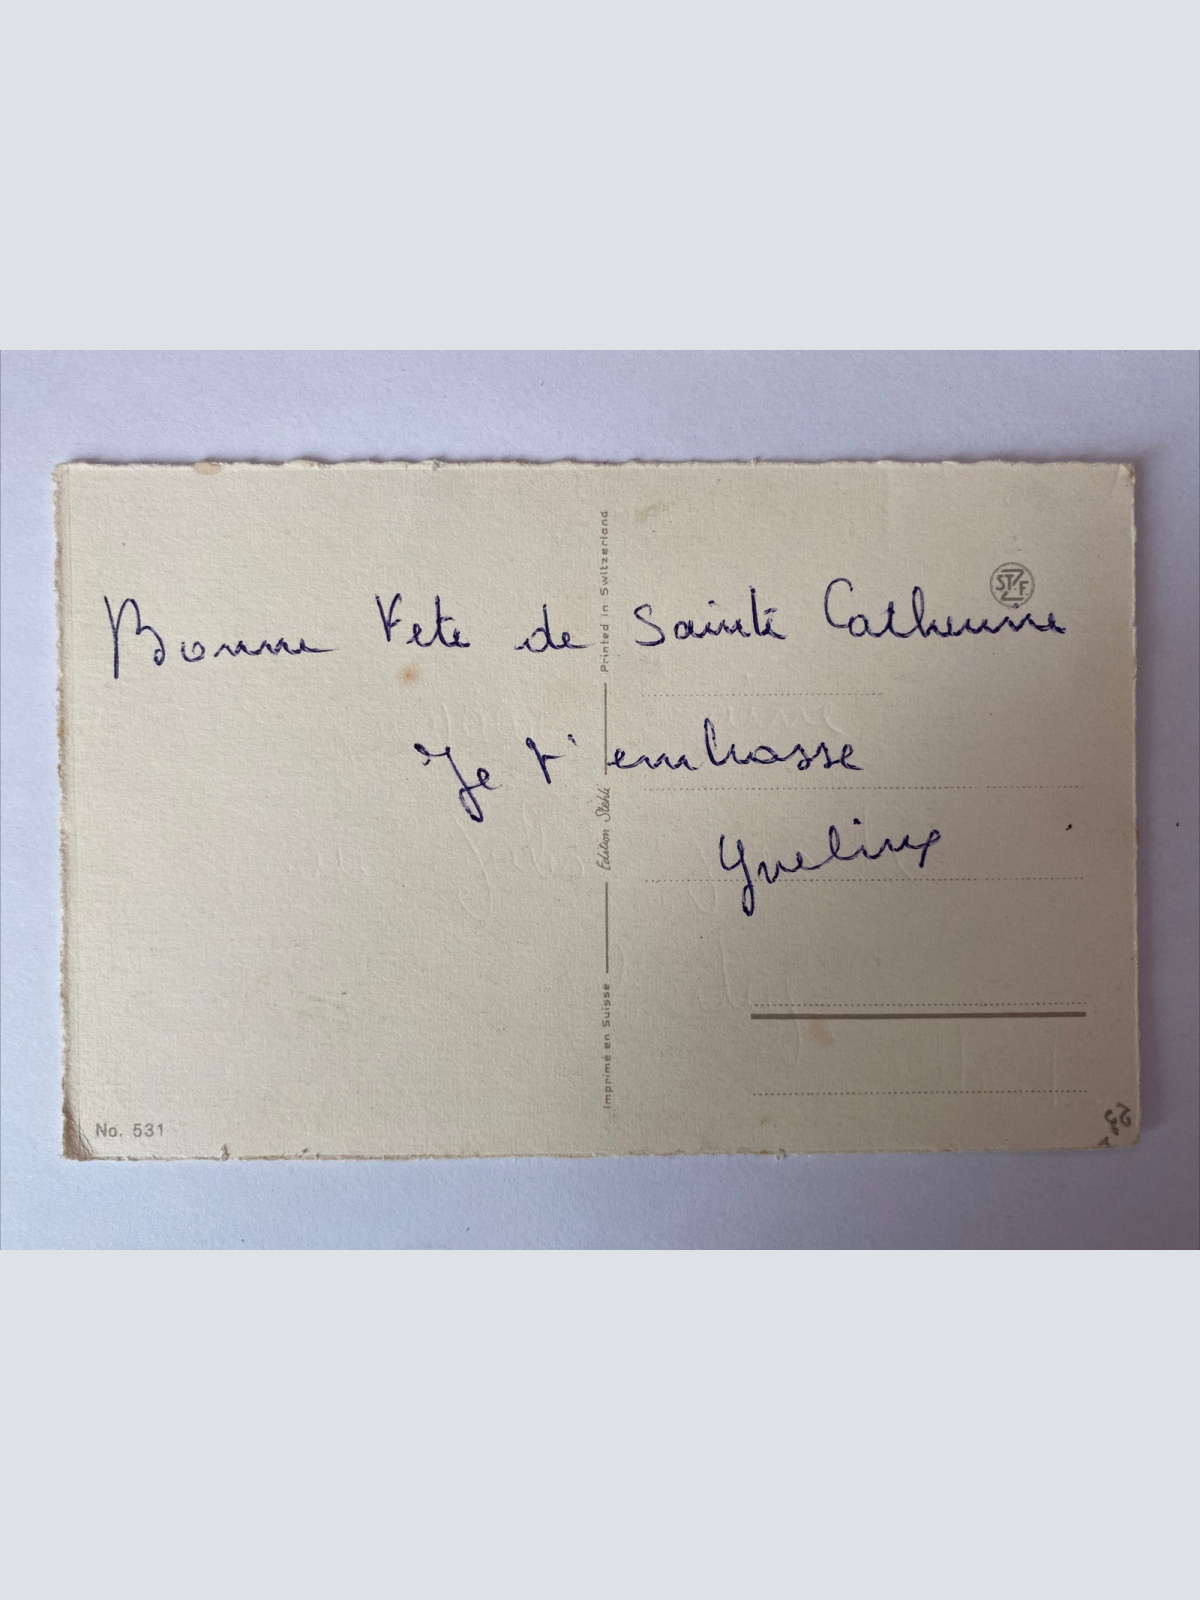 Bonne Fete de Sainte Catherine
Je t'embrasse
Yveline
Printed in Switzerland
Edition Stehli
Imprimé en Suisse
STZF
No. 531